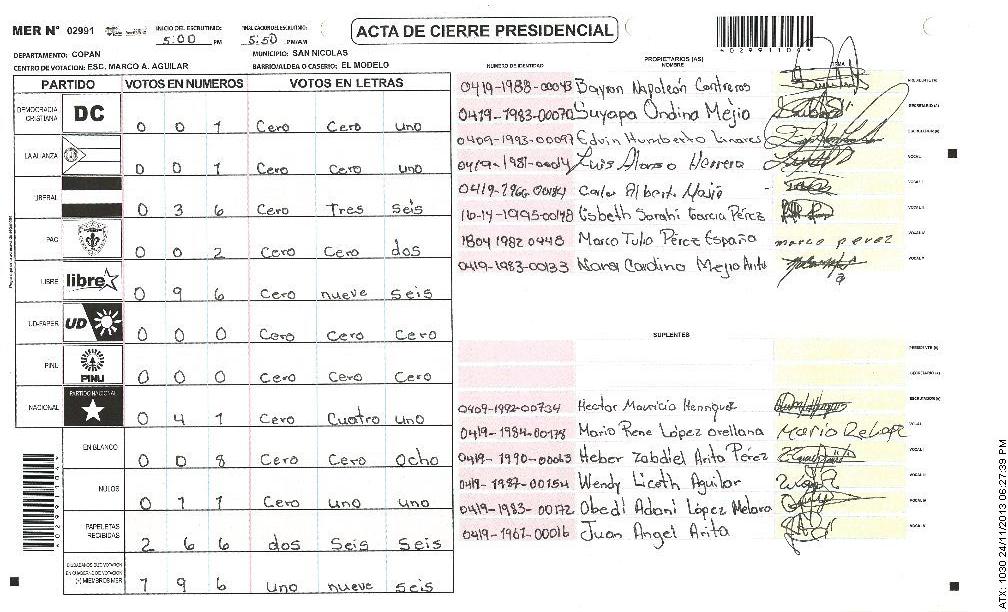 MER Nº 02991 INICIO DEL ESCRUTINIO: 5:00 PM FINALIZACION DEL ESCRUTINIO: 5:50 PM/AM
ACTA DE CIERRE PRESIDENCIAL
*02991104*
DEPARTAMENTO: COPAN MUNICIPIO: SAN NICOLAS
CENTRO DE VOTACION: ESC. MARCO A. AGUILAR BARRIO/ALDEA O CASERIO: EL MODELO
PARTIDO VOTOS EN NUMEROS VOTOS EN LETRAS
DEMOCRACIA CRISTIANA DC 0 0 1 Cero Cero uno
LA ALIANZA 0 0 1 Cero Cero uno
LIBERAL 0 3 6 Cero Tres seis
PAC 0 0 2 Cero Cero dos
LIBRE libre 0 9 6 Cero nueve seis
UD-FAPER UD 0 0 0 Cero Cero Cero
PINU PINU 0 0 0 Cero Cero Cero
NACIONAL PARTIDO NACIONAL 0 4 1 Cero Cuatro uno
EN BLANCO 0 0 8 Cero Cero Ocho
NULOS 0 1 1 Cero uno uno
PAPELETAS RECIBIDAS 2 6 6 dos Seis Seis
CIUDADANOS QUE VOTARON EN CUADERNO DE VOTACION (+) MIEMBROS MER 1 9 6 uno nueve seis
*02991104*
PROPIETARIOS (AS)
NUMERO DE IDENTIDAD NOMBRE FIRMA
0419-1988-00043 Bayron Napoleón Contreros
0419-1983-00070 Suyapa Ondina Mejio SECRETARIO (A)
0409-1993-00097 Edvin Humberto Linares ESCRUTADOR (A)
0419-1981-00014 Luis Alonso Herrera VOCAL I
0419-1966-00184 Carlos Alberto Mejio
16-14-1995-00148 Lisbeth Sarahi Garcia Pérez
1804 1982 0448 Marco Tulio Pérez España marco perez
0419-1983-00133 Nora Cardina Mejio Arita
SUPLENTES
PRESIDENTE (A)
SECRETARIO (A)
0409-1992-00734 Hector Mauricio Henriquez ESCRUTADOR (A)
0419-1984-00178 Mario Rene López orellana Mario Re Lope
0419-1990-00063 Heber Zabdiel Arita Pérez
0419-1987-00154 Wendy Liceth Aguilar
0419-1983-00172 Obedi Adani López Melara
0419-1967-00016 Juan Angel Arita
ATX: 1030 24/11/2013 06:27:39 PM